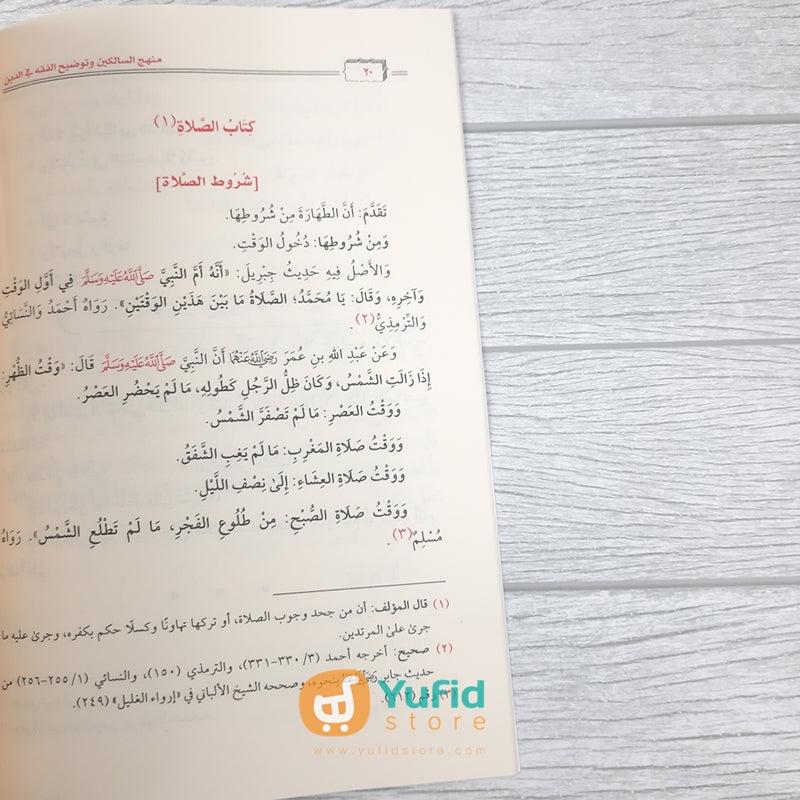 منهج السالكين وتوضيح الفقه في الدين
٢٠
كِتَابُ الصَّلَاةِ(١)
[شُرُوط الصَّلَاة]
تَقَدَّمَ: أَنَّ الطَّهَارَةَ مِنْ شُرُوطِهَا.
وَمِنْ شُرُوطِهَا: دُخُولُ الوَقْتِ.
وَالأَصْلُ فِيهِ حَدِيثُ جِبْرِيلَ: «أَنَّهُ أَمَّ النَّبِيَّ صَلَّى اللَّهُ عَلَيْهِ وَسَلَّمَ فِي أَوَّلِ الوَقْتِ
وَآخِرِهِ، وَقَالَ: يَا مُحَمَّدُ؛ الصَّلَاةُ مَا بَيْنَ هَذَيْنِ الوَقْتَيْنِ». رَوَاهُ أَحْمَدُ وَالنَّسَائِيُّ
وَالتِّرْمِذِيُّ(٢).
وَعَنْ عَبْدِ اللهِ بنِ عُمَرَ رَضِيَ اللَّهُ عَنْهُمَا أَنَّ النَّبِيَّ صَلَّى اللَّهُ عَلَيْهِ وَسَلَّمَ قَالَ: «وَقْتُ الظُّهْرِ:
إِذَا زَالَتِ الشَّمْسُ، وَكَانَ ظِلُّ الرَّجُلِ كَطُولِهِ، مَا لَمْ يَحْضُرِ العَصْرُ.
وَوَقْتُ العَصْرِ: مَا لَمْ تَصْفَرَّ الشَّمْسُ.
وَوَقْتُ صَلَاةِ المَغْرِبِ: مَا لَمْ يَغِبِ الشَّفَقُ.
وَوَقْتُ صَلَاةِ العِشَاءِ: إِلَىٰ نِصْفِ اللَّيْلِ.
وَوَقْتُ صَلَاةِ الصُّبْحِ: مِنْ طُلُوعِ الفَجْرِ، مَا لَمْ تَطْلُعِ الشَّمْسُ». رَوَاهُ
مُسْلِمٌ(٣).
(١) قال المؤلف: أن من جحد وجوب الصلاة، أو تركها تهاونًا وكسلًا حكم بكفره، وجرى عليه ما
جرى على المرتدين.
(٢) صحيح: أخرجه أحمد (٣/ ٣٣٠-٣٣١)، والترمذي (١٥٠)، والنسائي (١/ ٢٥٥-٢٥٦) من
حديث جابر بنحوه، وصححه الشيخ الألباني في «إرواء الغليل» (٢٤٩).
(٣) رقم (٦١٢).
Yufid
store
www.yufidstore.com